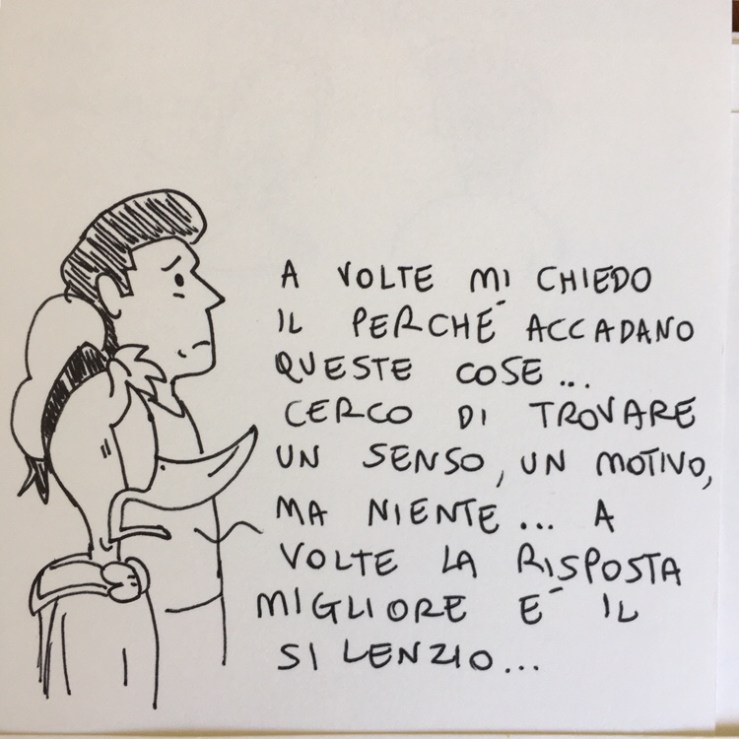 A VOLTE MI CHIEDO
IL PERCHÉ ACCADANO
QUESTE COSE...
CERCO DI TROVARE
UN SENSO, UN MOTIVO,
MA NIENTE... A
VOLTE LA RISPOSTA
MIGLIORE É IL
SILENZIO...